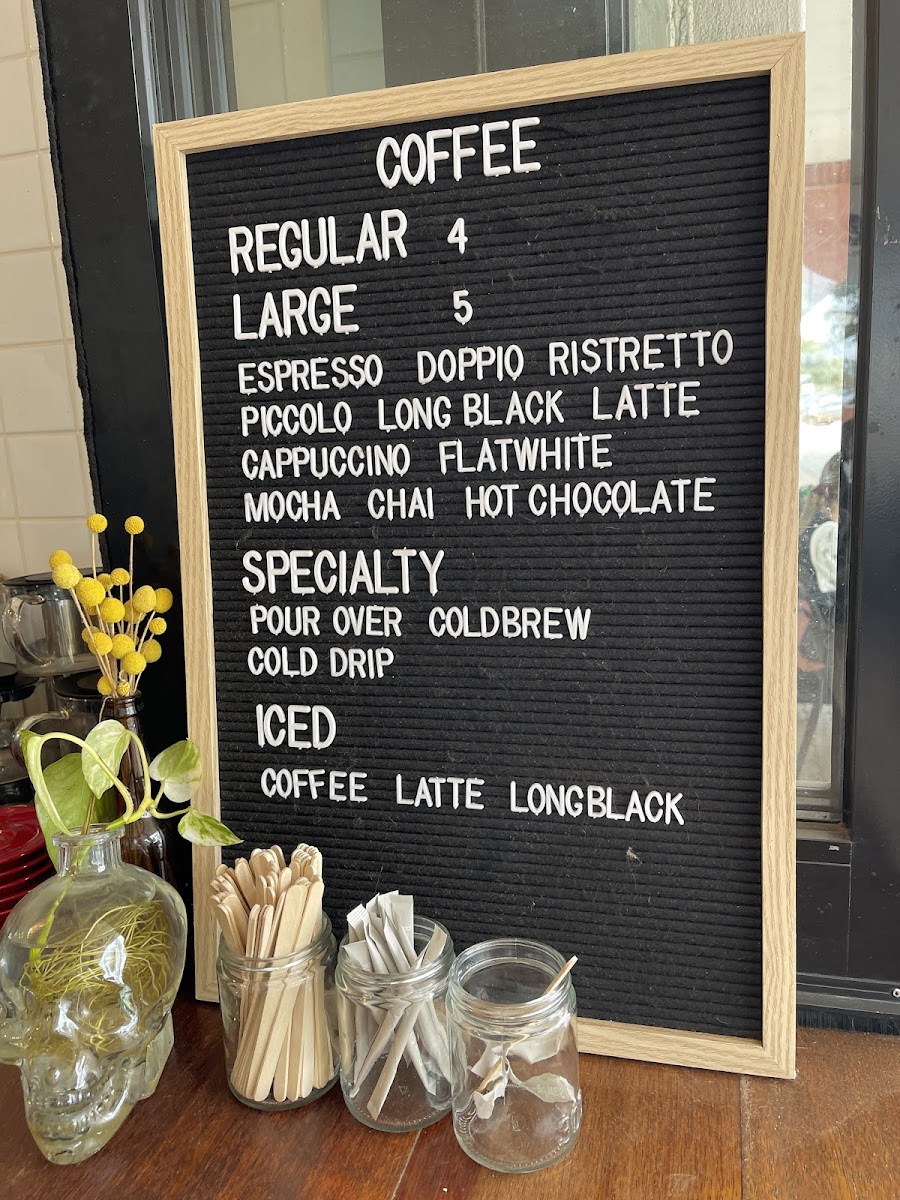 COFFEE
REGULAR 4
LARGE 5
ESPRESSO DOPPIO RISTRETTO
PICCOLO LONG BLACK LATTE
CAPPUCCINO FLATWHITE
MOCHA CHAI HOT CHOCOLATE
SPECIALTY
POUR OVER COLDBREW
COLD DRIP
ICED
COFFEE LATTE LONGBLACK